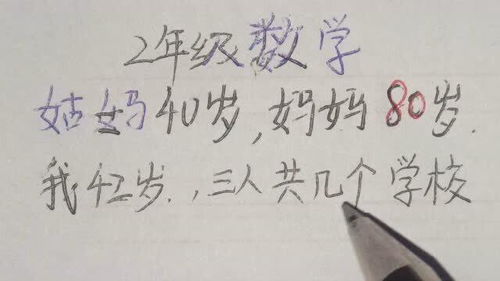 2年级数学
姑妈40岁,妈妈80岁.
我42岁.,三人共几个学校